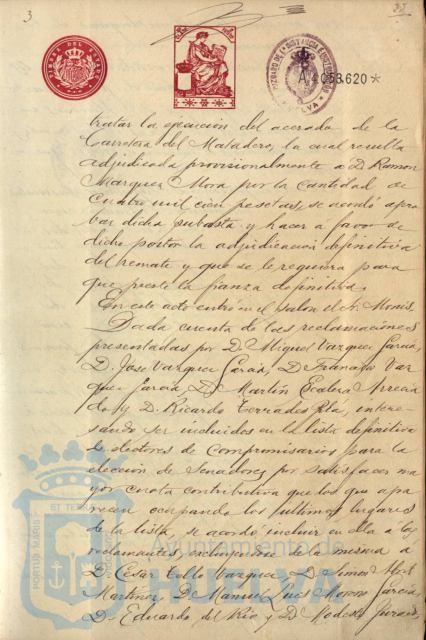 3
TIMBRE DEL ESTADO
JUZGADO DE 1ª INSTANCIA E INSTRUCCION
HUELVA
A.4.053.620*
tratar la ejecución del acerado de la
Carretera del Matadero, la cual resulta
adjudicada provisionalmente a D. Ramon
Marquez Mora por la cantidad de
cuatro mil cien pesetas, se acordó apro
bar dicha subasta y hacer á favor de
dicho postor la adjudicacion definitiva
del remate y que se le requiera para
que preste la fianza definitiva.
En este acto entró en el salon el Sr. Monis.
Dada cuenta de las reclamaciones
presentadas por D. Miguel Vazquez Garcia,
D. Jose Vazquez Garcia, D. Francisco Vaz
quez Garcia, D. Martín Escalera Aprecia
do y D. Ricardo Terrades Plá, intere
sando ser incluidos en la lista definitiva
de electores de Compromisarios para la
elección de Senadores por satisfacer ma
yor cuota contributiva que los que apa
recen ocupando los ultimos lugares
de la lista, se acordó incluir en ella á los
reclamantes, excluyendo de la misma a
D. Cesar Tello Vazquez, D. Simon
Martinez, D. Manuel Luis Moreno Garcia,
D. Eduardo del Rio, y D. Modesto
PORTUS MARIS ET TERRAE
Ayuntamiento de
HUELVA